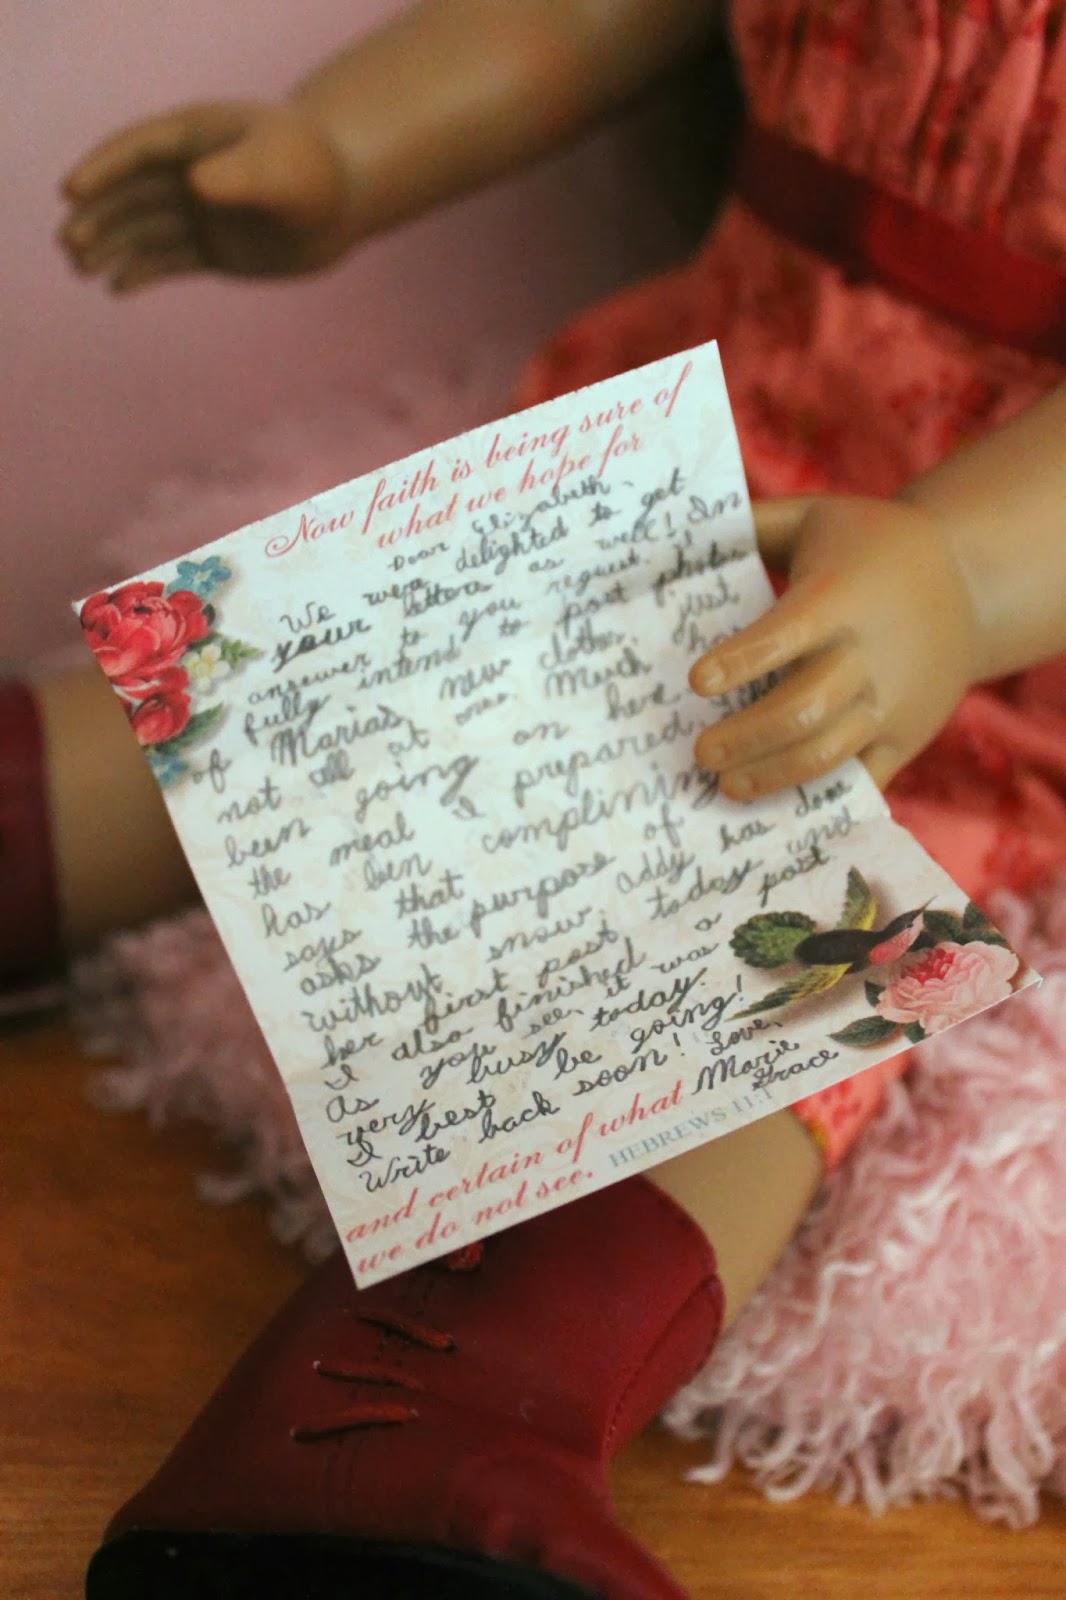 Now faith is being sure of
what we hope for
Dear Elizabeth,
We were delighted to get
your letters as well! In
answer to you request. I
fully intend to post photos
of Marias new clothes. just
not all at once. Much has
been going on here
the meal I prepared.
has ben complining
says that
asks the purpose of
without snow. Addy has done
her first post today and
I also finished a post
As you see, it was
very busy today.
I best be going!
Write back soon! Love,
Marie
Grace
and certain of what
we do not see. HEBREWS 11:1